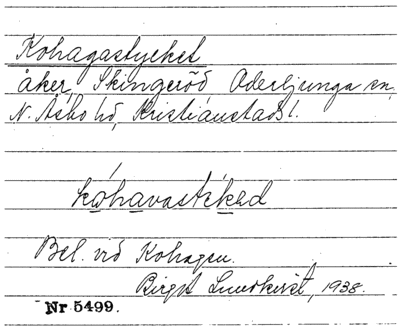 Kohagastycket
åker, Skingeröd Oderljunga sn,
N. Åsbo hd, Kristianstads l.
kóhavastýkəd
Bel. vid Kohagen.
Birgit Lundkvist, 1938.
Nr 5499.